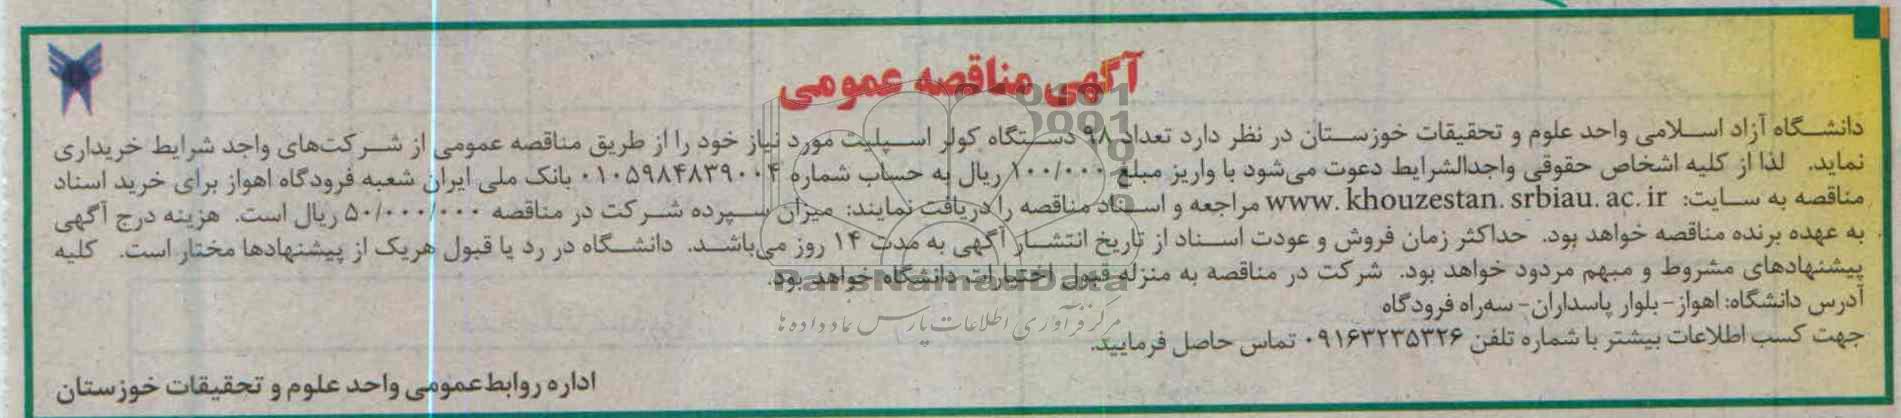 آگهی مناقصه عمومی
دانشگاه آزاد اسلامی واحد علوم و تحقیقات خوزستان در نظر دارد تعداد ۹۸ دستگاه کولر اسپلیت مورد نیاز خود را از طریق مناقصه عمومی از شرکت‌های واجد شرایط خریداری
نماید. لذا از کلیه اشخاص حقوقی واجدالشرایط دعوت می‌شود با واریز مبلغ ۱۰۰/۰۰۰ ریال به حساب شماره ۰۱۰۵۹۸۴۸۳۹۰۰۴ بانک ملی ایران شعبه فرودگاه اهواز برای خرید اسناد
مناقصه به سایت: www.khouzestan.srbiau.ac.ir مراجعه و اسناد مناقصه را دریافت نمایند: میزان سپرده شرکت در مناقصه ۵۰/۰۰۰/۰۰۰ ریال است. هزینه درج آگهی
به عهده برنده مناقصه خواهد بود. حداکثر زمان فروش و عودت اسناد از تاریخ انتشار آگهی به مدت ۱۴ روز می‌باشد. دانشگاه در رد یا قبول هریک از پیشنهادها مختار است. کلیه
پیشنهادهای مشروط و مبهم مردود خواهد بود. شرکت در مناقصه به منزله قبول اختیارات دانشگاه خواهد بود.
آدرس دانشگاه: اهواز- بلوار پاسداران- سه‌راه فرودگاه
جهت کسب اطلاعات بیشتر با شماره تلفن ۰۹۱۶۳۲۳۵۳۲۶ تماس حاصل فرمایید.
اداره روابط عمومی واحد علوم و تحقیقات خوزستان
ParsNamadData
مرکز فرآوری اطلاعات پارس نماد داده ها